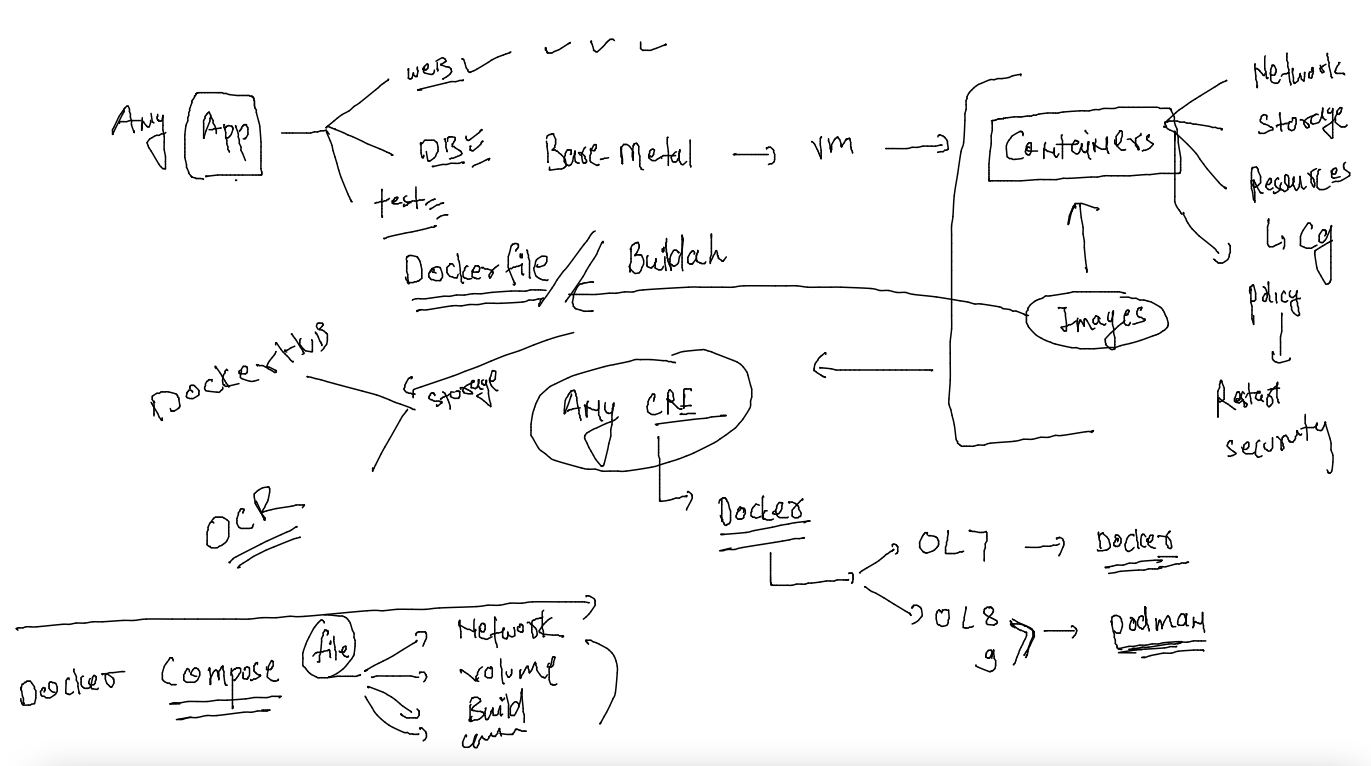 Any App
web
DB
test
Bare-Metal
vm
Containers
Network
Storage
Resources
Cg
policy
Restart
security
Images
Dockerfile
Buildah
DockerHuB
storage
OCR
Any CRE
Docker
OL7
Docker
OL8
9
podman
Docker Compose file
Network
volume
Build